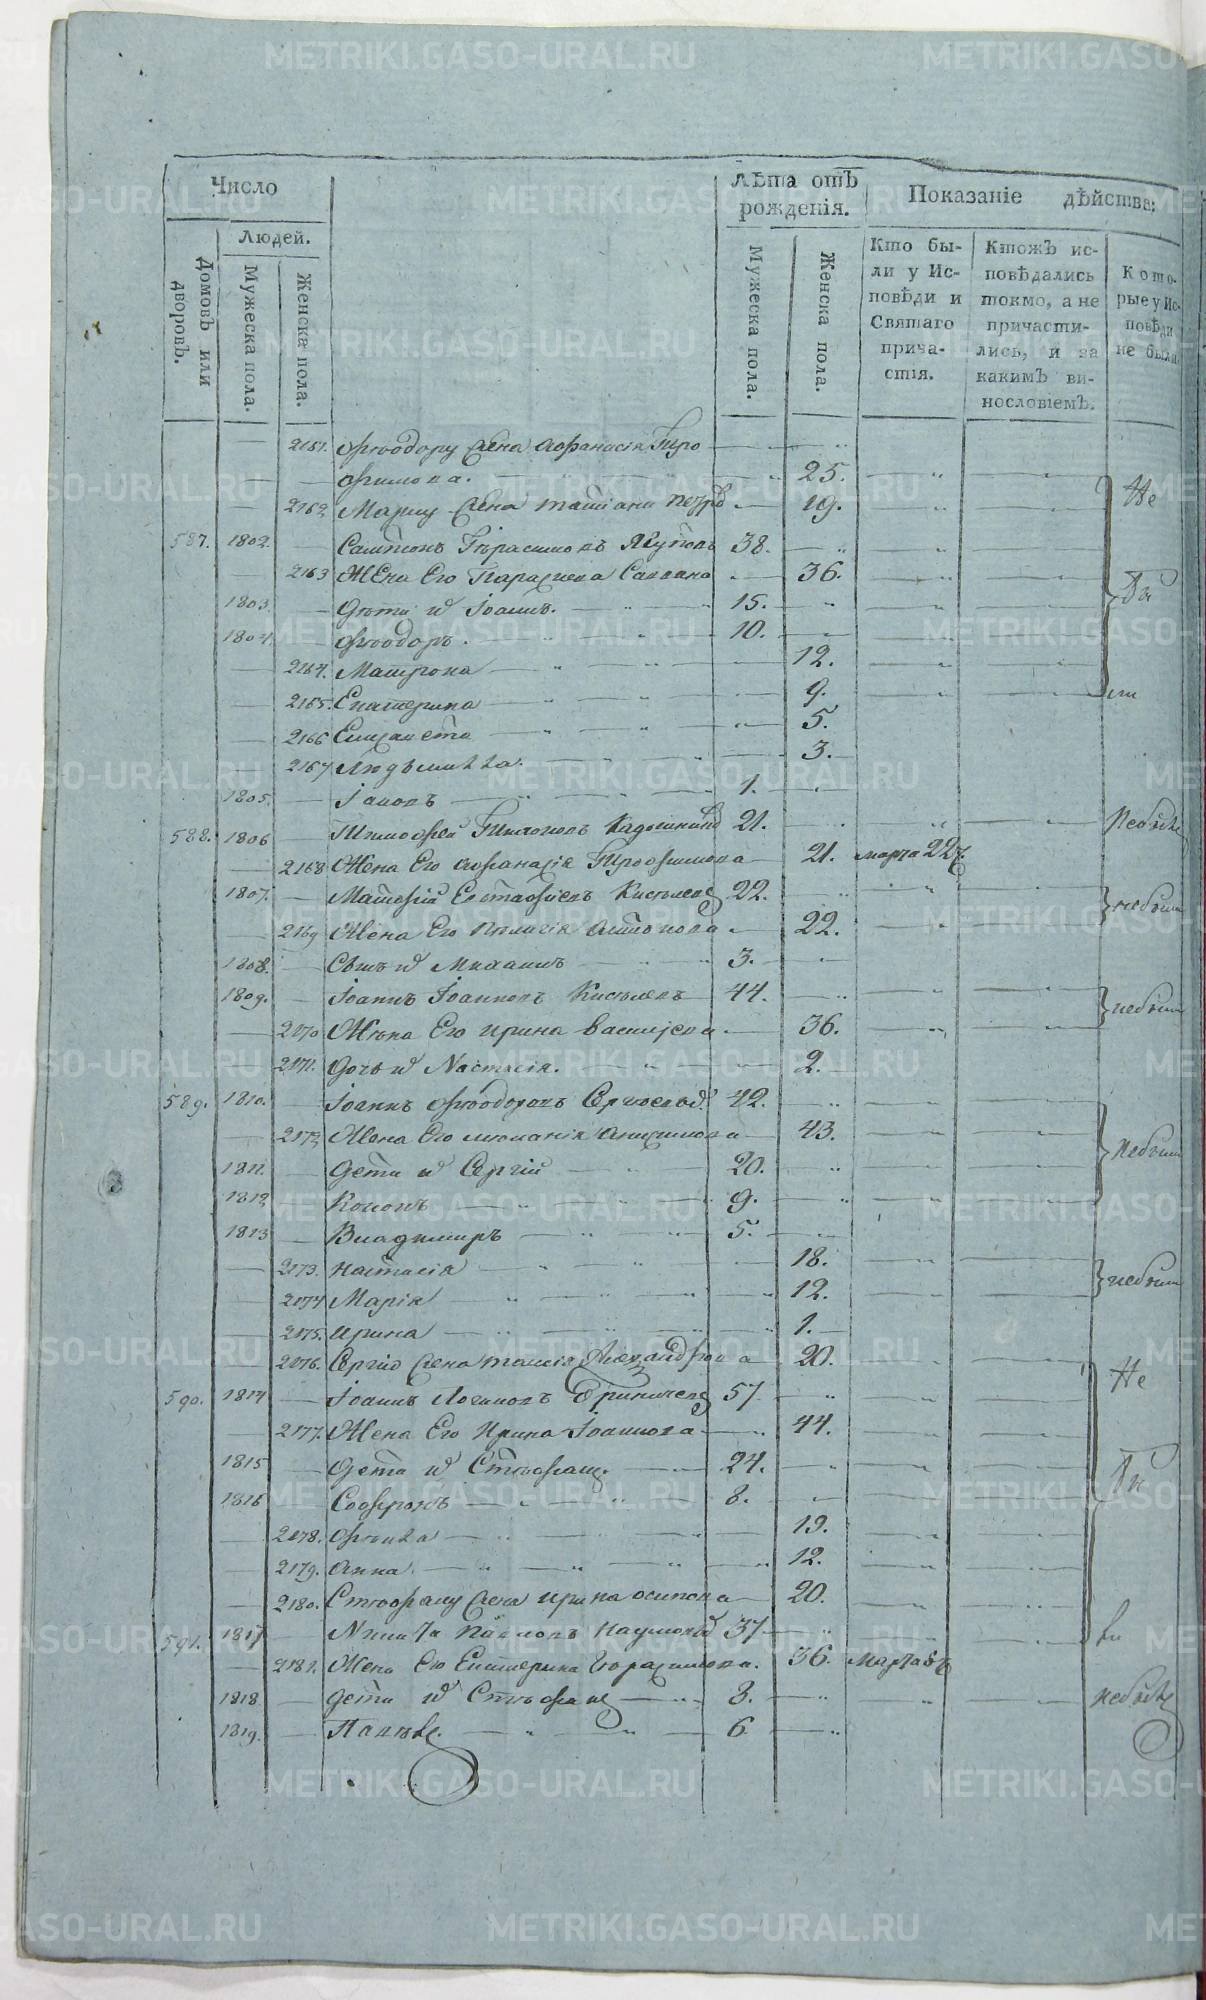 Число
Людей.
Домовъ или дворовъ.
Мужеска пола.
Женска пола.
Лѣта отъ рожденія.
Мужеска пола.
Женска пола.
Показаніе дѣйства:
Кто бы-
ли у Ис-
повѣди и
Святаго
прича-
стія.
Ктожъ ис-
повѣдались
токмо, а не
причасти-
лись, и за
какимъ ви-
нословіемъ.
Кото-
рые у Ис-
повѣди
не были
2161. Ѳеодору жена Аѳанасія Тро
фимова. 25.
2162 Марку жена Татіана Петро 19. Не
587. 1802. Сампсонъ Герасимовъ 38.
2163 Жена Его Параскева Саввина 36.
1803. Дѣти и҃ Іоаннъ. 15. бы
1804. Ѳеодоръ. 10.
2164. Матрона 12.
2165. Екатерина 9. ли
2166 Елизавета 5.
2167 Людъмилла. 3.
1805. Іаковъ 1.
588. 1806 Тимоѳей 21.
2168 Жена Его Аѳанасія Трофимова 21. марта 22
1807. Матѳей Евстафіевъ Киселевъ 22. небыли
2169 Жена Его Пелагія 22.
1808. Сынъ и҃ Михаилъ 3.
1809. Іоаннъ Іоанновъ Киселевъ 44. небыли
2170 Жена Его Ирина Василіева 36.
2171. Дочь и҃ Настасія. 2.
589. 1810. Іоаннъ Ѳеодоровъ 42.
2172 Жена Его Анисимова 43. небыли
1811. Дети и҃ Сергій 20.
1812 Кононъ 9.
1813 Владимиръ 5.
2173. Настасія 18. небыли
2174 Марія 12.
2175. Ирина 1.
2176. Сергію жена Таисія Александрова 20. Не
590. 1814 Іоаннъ Логиновъ 57
2177. Жена Его Ирина Іоаннова 44.
1815 Дети и҃ Стефанъ. 24. бы
1816 Софронъ 8.
2178. Ѳекла 19.
2179. Анна 12.
2180. Стефану жена Ирина Осипова 20. ли
591. 1817 Никита Павловъ Наумовъ 37
2181. Жена Его Екатерина Герасимова. 36. Марта
1818 Дети и҃ Стефанъ 8.
1819. Павелъ. 6